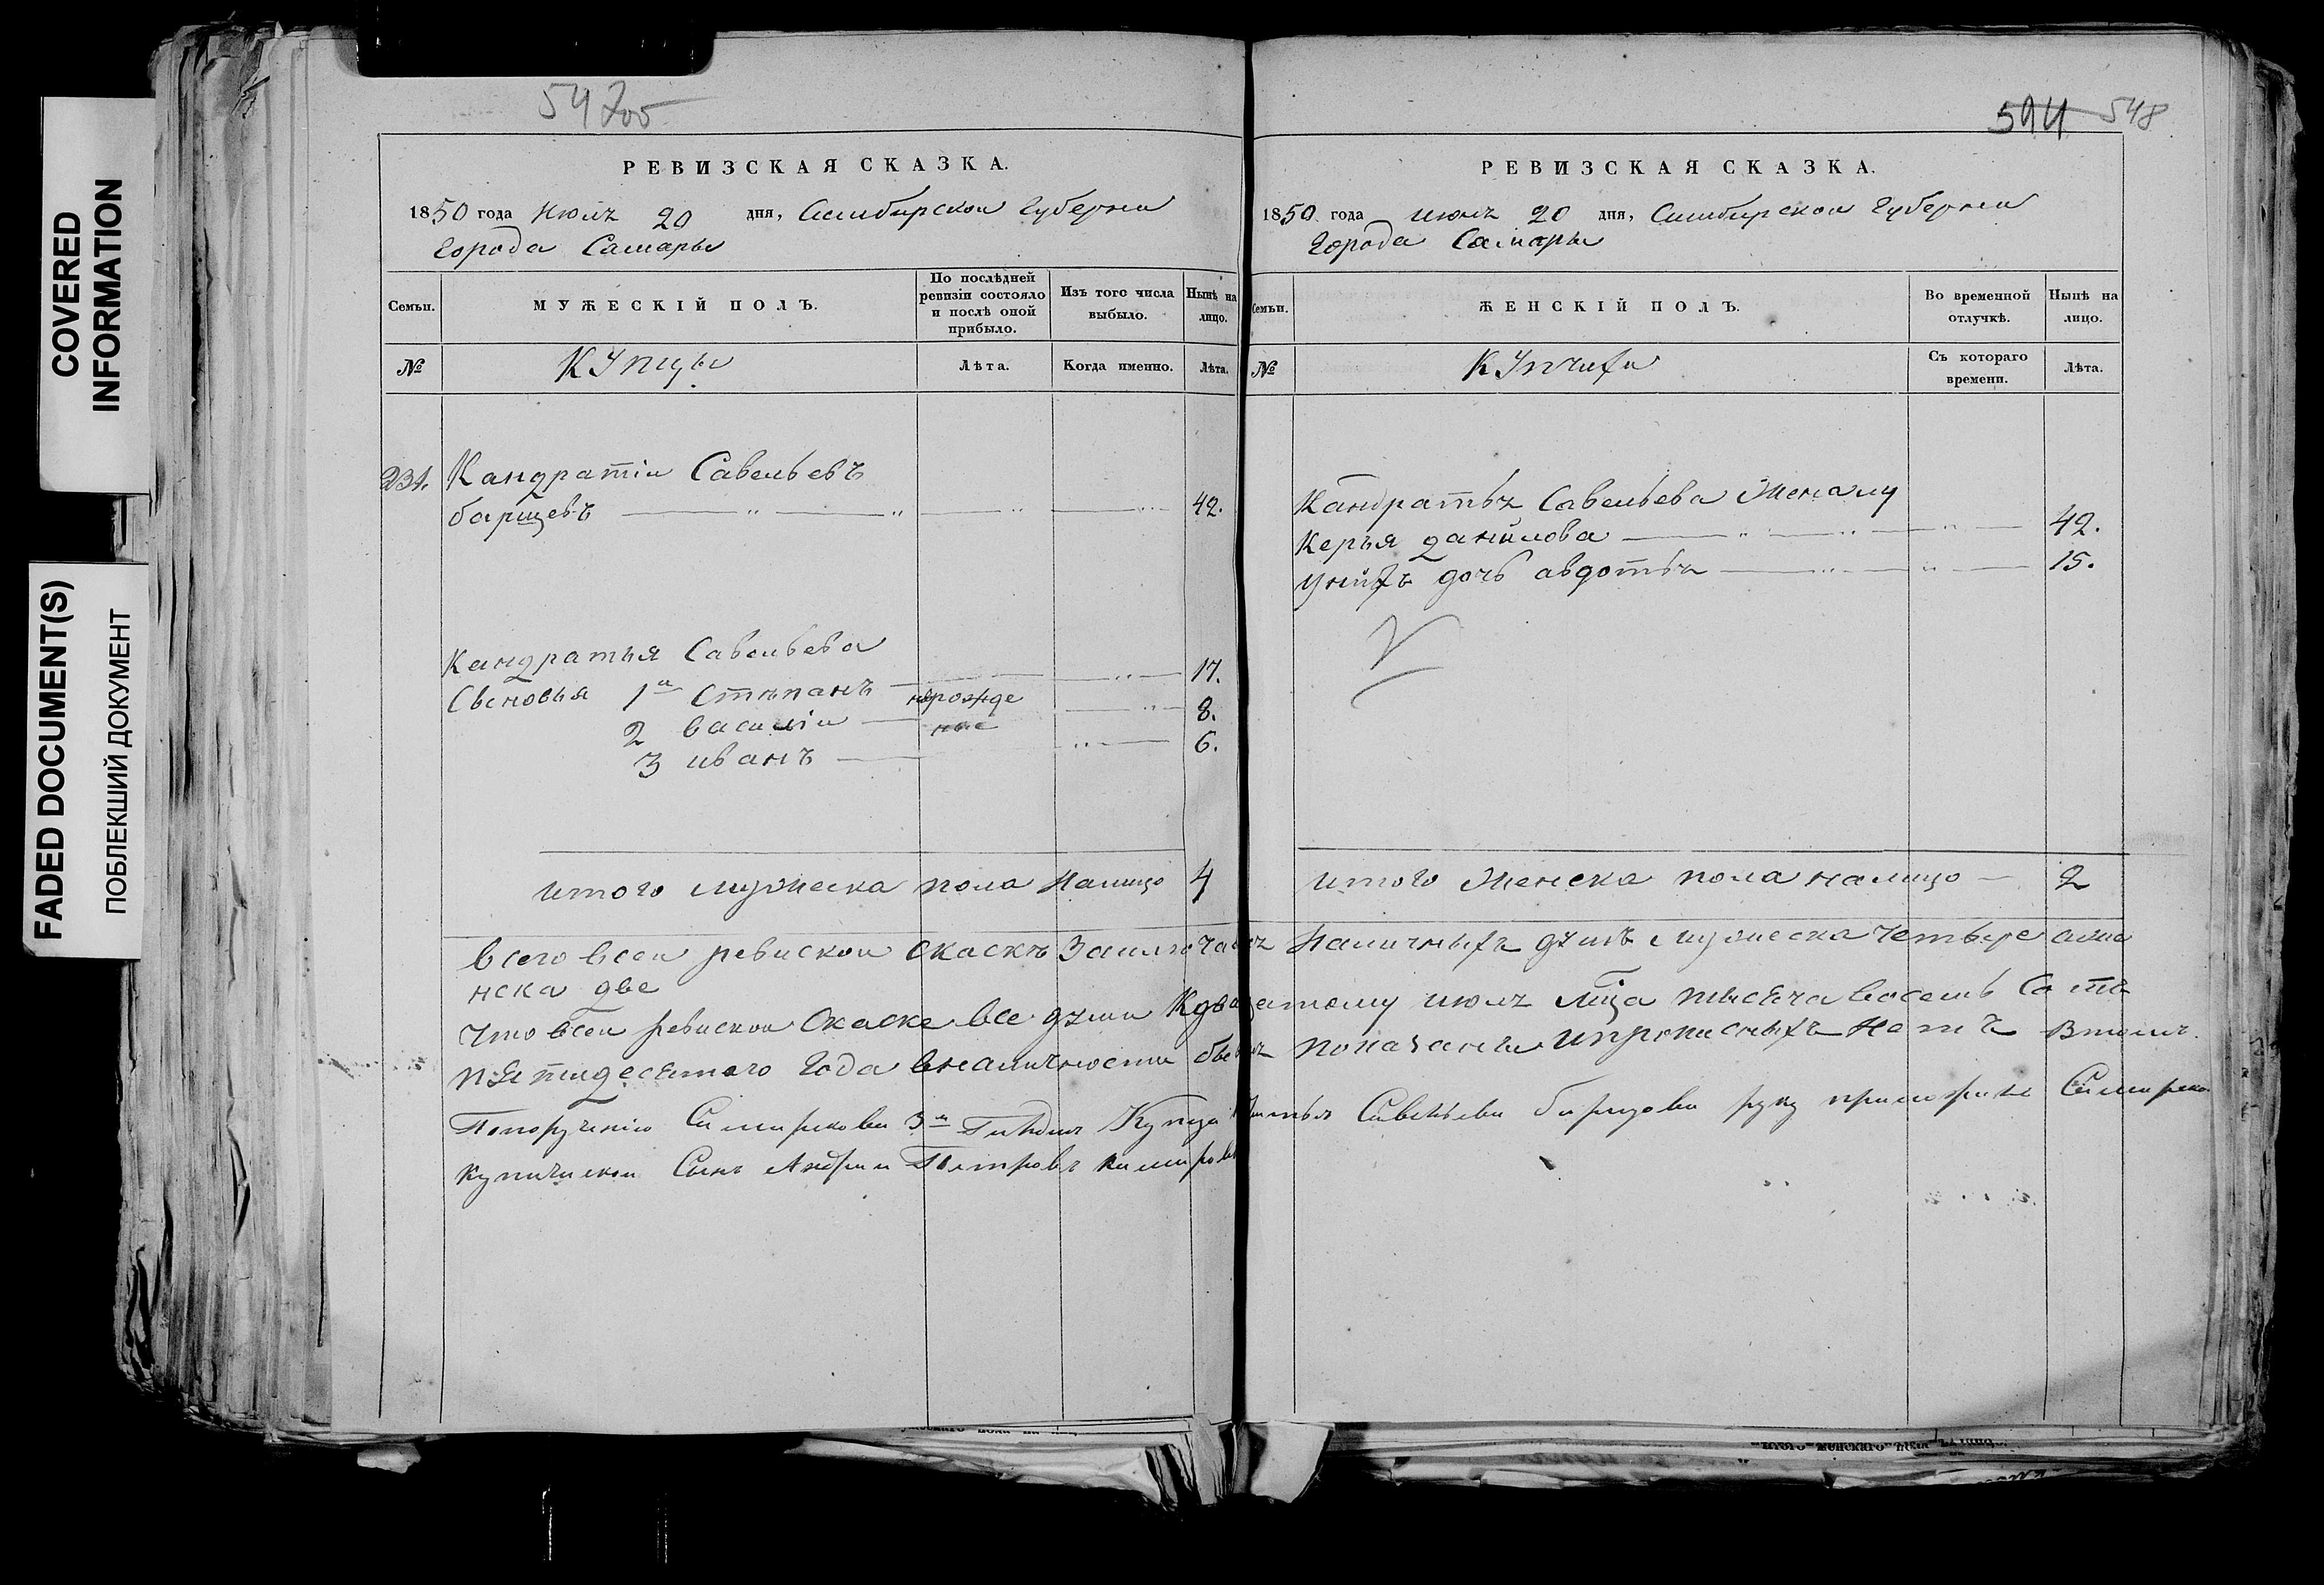 COVERED
INFORMATION
FADED DOCUMENT(S)
ПОБЛЕКШИЙ ДОКУМЕНТ
547об
РЕВИЗСКАЯ СКАЗКА.
1850 года июля 20 дня, Симбирской губернии
города Самары
Семьи.
МУЖЕСКІЙ ПОЛЪ.
По послѣдней
ревизіи состояло
и послѣ оной
прибыло.
Изъ того числа
выбыло.
Нынѣ на
лицо.
№
Купцы
Лѣта.
Когда именно.
Лѣта.
231. Кандратіи Савельевъ
барщевъ 42.
Кандратья Савельева
Сыновья 1й Степанъ нерожде 17.
2 василіи ное 8.
3 иванъ 6.
итого мужеска пола налицо 4
594 548
РЕВИЗСКАЯ СКАЗКА.
1850 года июля 20 дня, Симбирской губернии
города Самары
Семьи.
ЖЕНСКІЙ ПОЛЪ.
Во временной
отлучкѣ.
Нынѣ на
лицо.
№
Купчихи
Съ котораго
времени.
Лѣта.
Кандратья Савельева Жена му
керья данилова 42.
унихъ дочь авдотья 15.
итого женска пола налицо 2
всего всеи ревискои скаскъ Заключа наличныхъ душъ мужеска четыре аже
нска две
что всеи ревискои скаске все души Кдвацатому июля мца тысеча восемь сотъ
пятидесятого года вналичности были показаны ипрописныхъ нетъ втомъ
Попорученію Самарскова 3й Гильдии Купца Савельева барщова руку приложилъ Самарско
купеческои Сынъ Андреи Петровъ